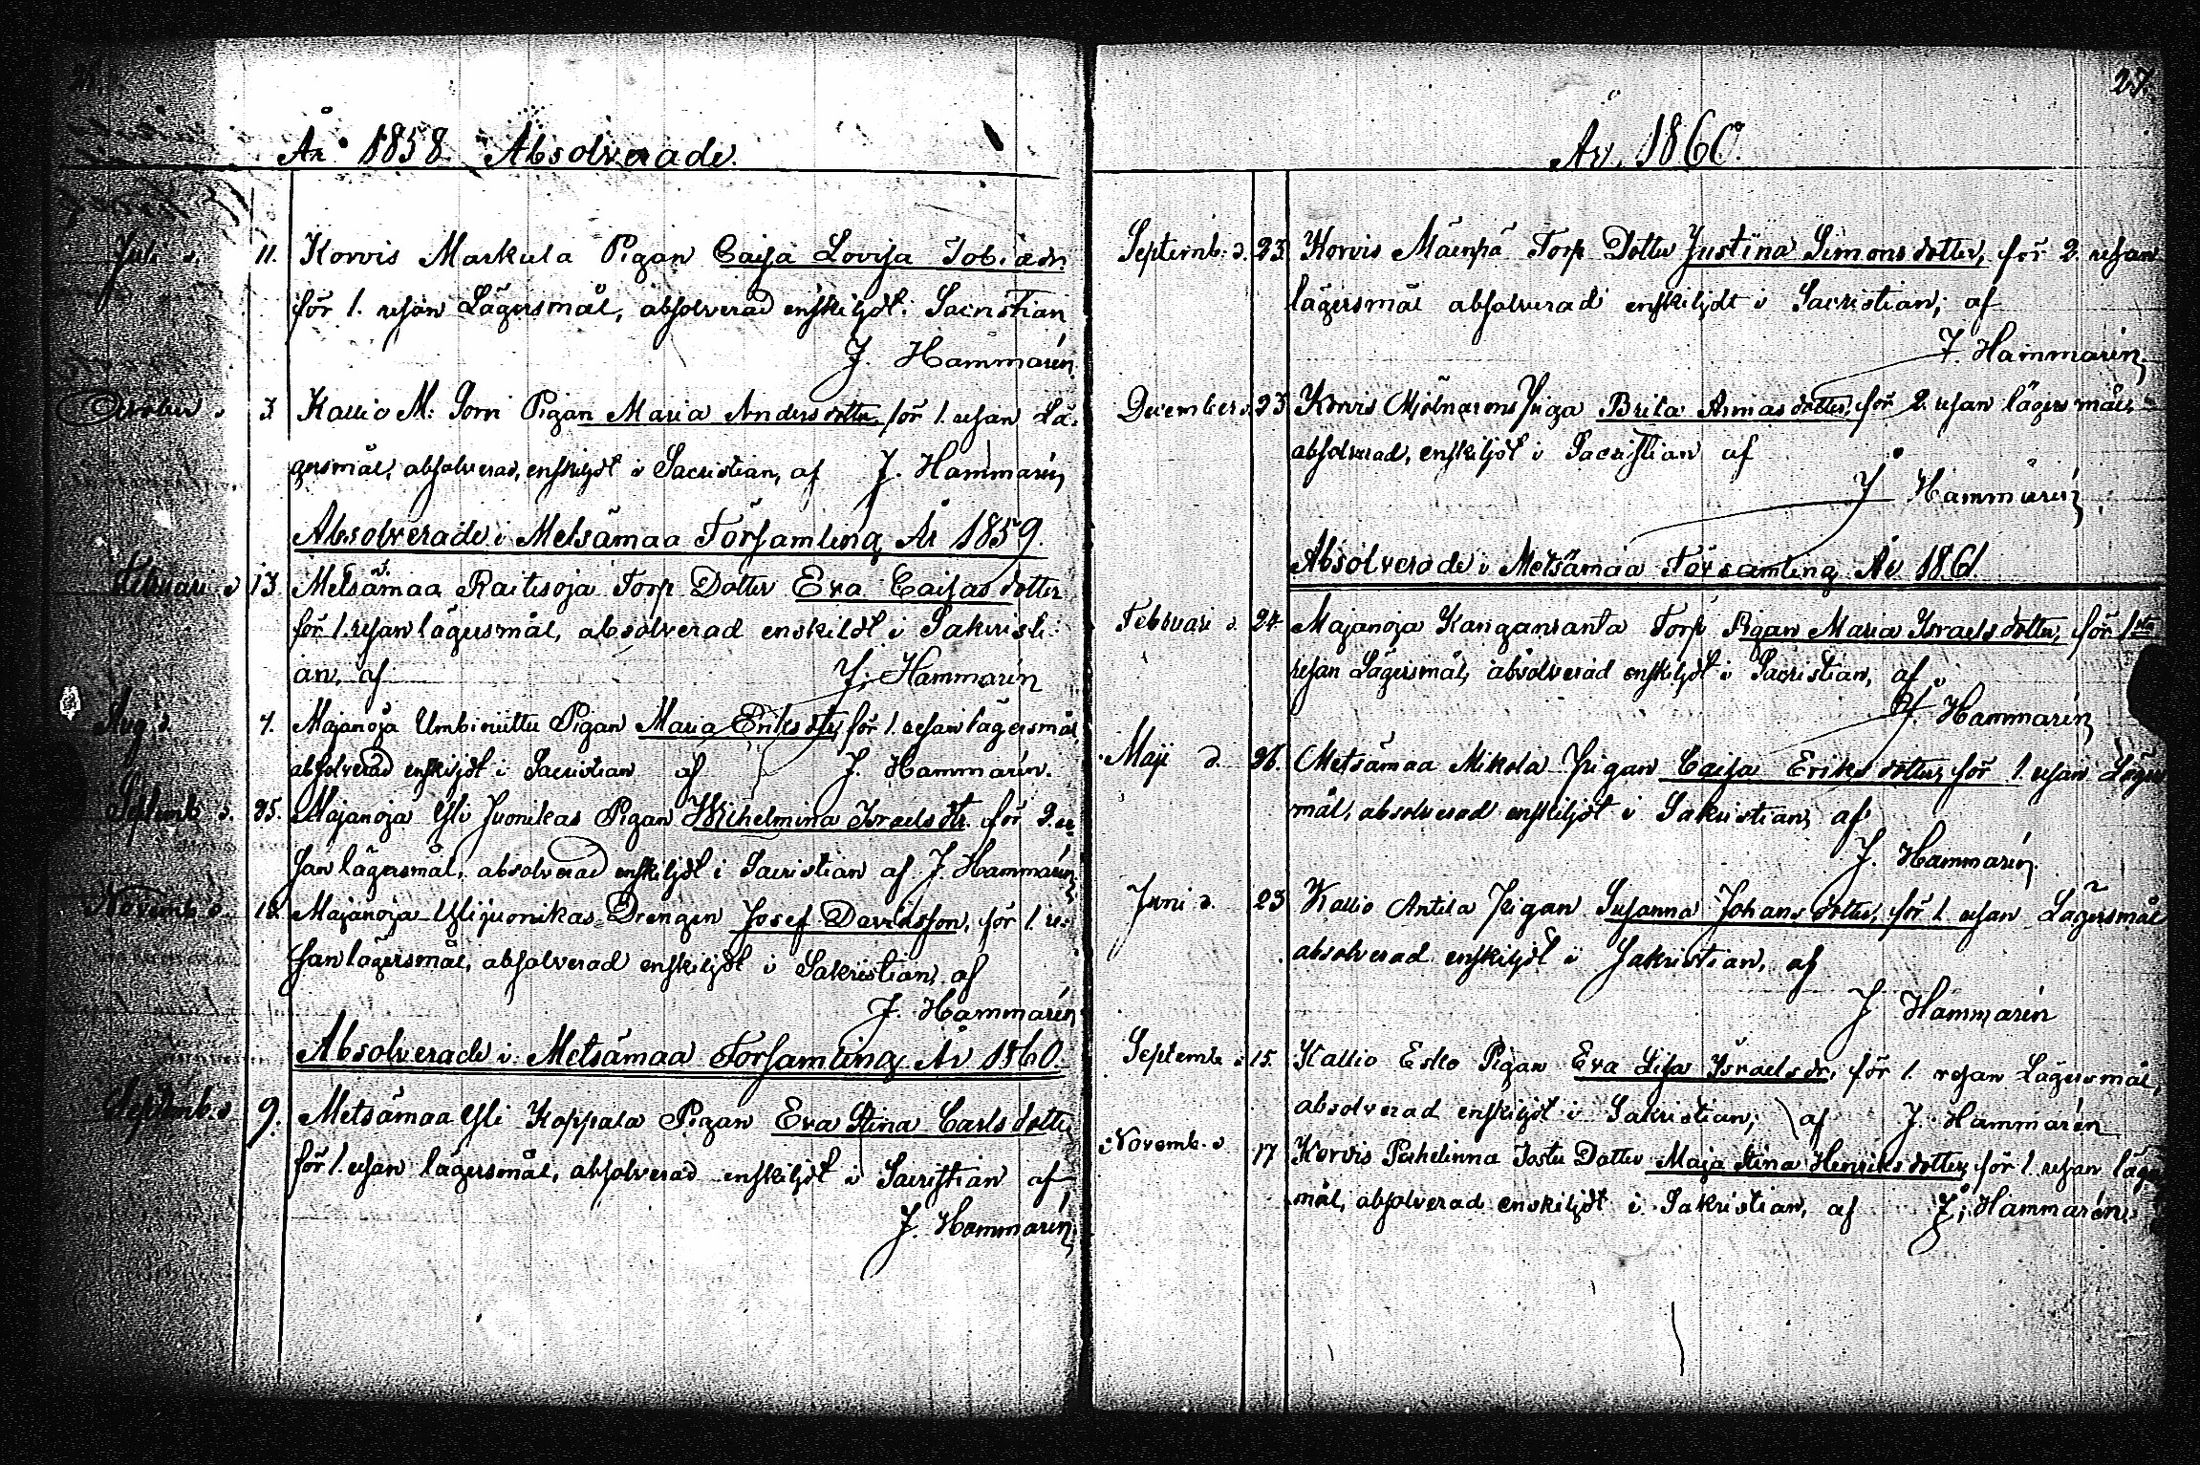 År 1858 Absolverade.
Juli d. 11. Korvis Markula Pigan Caisa Lovisa Tobiasdr.
för 1. resan Lägersmål, absolverad enskiljdt i Sacristian
J. Hammarén
October d. 3 Kallio M: Sorri Pigan Maria Andersdotter, för 1. resan Lä-
gersmål, absolverad, enskiljdt i Sacristian, af J. Hammarén
Absolverade i Metsämaa Församling År 1859.
Februari d 13. Metsämaa Raitisoja Torp Dotter Eva Caisasdotter
för 1. resan lägersmål, absolverad enskildt i Sakristi-
an, af J. Hammarén
Aug. d. 7. Majanoja Pigan Maria Eriksdtr, för 1. resan lägersmål,
absolverad enskiljdt i Sacristian af J. Hammarén.
Septemb d. 25. Majanoja Yli Juonikas Pigan Wilhelmina Israelsdtr. för 2. re-
san lägersmål, absolverad enskiljdt i Sacristian af J. Hammarén
Novemb. d. Majanoja Ylijuonikas Drengen Josef Davidsson, för 1. re-
san lägersmål, absolverad enskiljdt i Sakristian, af
J. Hammarén
Absolverade i Metsämaa Församling År 1860.
Septemb. d. 9. Metsämaa Yli Koppala Pigan Eva Stina Carlsdotter
för 1. resan lägersmål, absolverad enskiljdt i Sacristian af
J. Hammarén
27.
År 1860.
Septemb. d. 23. Korvis Mäenpä Torp Dotter Justina Simonsdotter, för 2. resan
lägersmål absolverad enskiljdt i Sacristian, af
J. Hammarén
December d. 23 Korvis Mjölnarens Piga Brita Annasdotter, för 2. resan lägersmål
absolverad, enskiljdt i Sacristian af
J Hammarén
Absolverade i Metsämaa Församling År 1861.
Februari d. 24. Majanoja Kanganranta Torp Pigan Maria Israelsdotter, för 1sta
resan Lägersmål, absolverad enskiljdt i Sacristian, af
J. Hammarén
Maji d. 26. Metsämaa Mikola Pigan Caisa Eriksdotter, för 1. resan Lägers
mål, absolverad enskiljdt i Sakristian, af
J. Hammarén
Juni d. 23 Kallio Antila Pigan Susanna Johansdotter, för 1. resan Lägersmål
absolverad enskiljdt i Sakristian, af
J Hammarén
Septemb d 15. Kallio Esko Pigan Eva Lisa Israelsdr, för 1. resan Lägersmål,
absolverad enskiljdt i Sakristian, af J. Hammarén
Novemb. d 17 Korvis Dotter Maja Stina Henriksdotter, för 1. resan lägers
mål, absolverad enskiljdt i Sakristian, af J. Hammarén